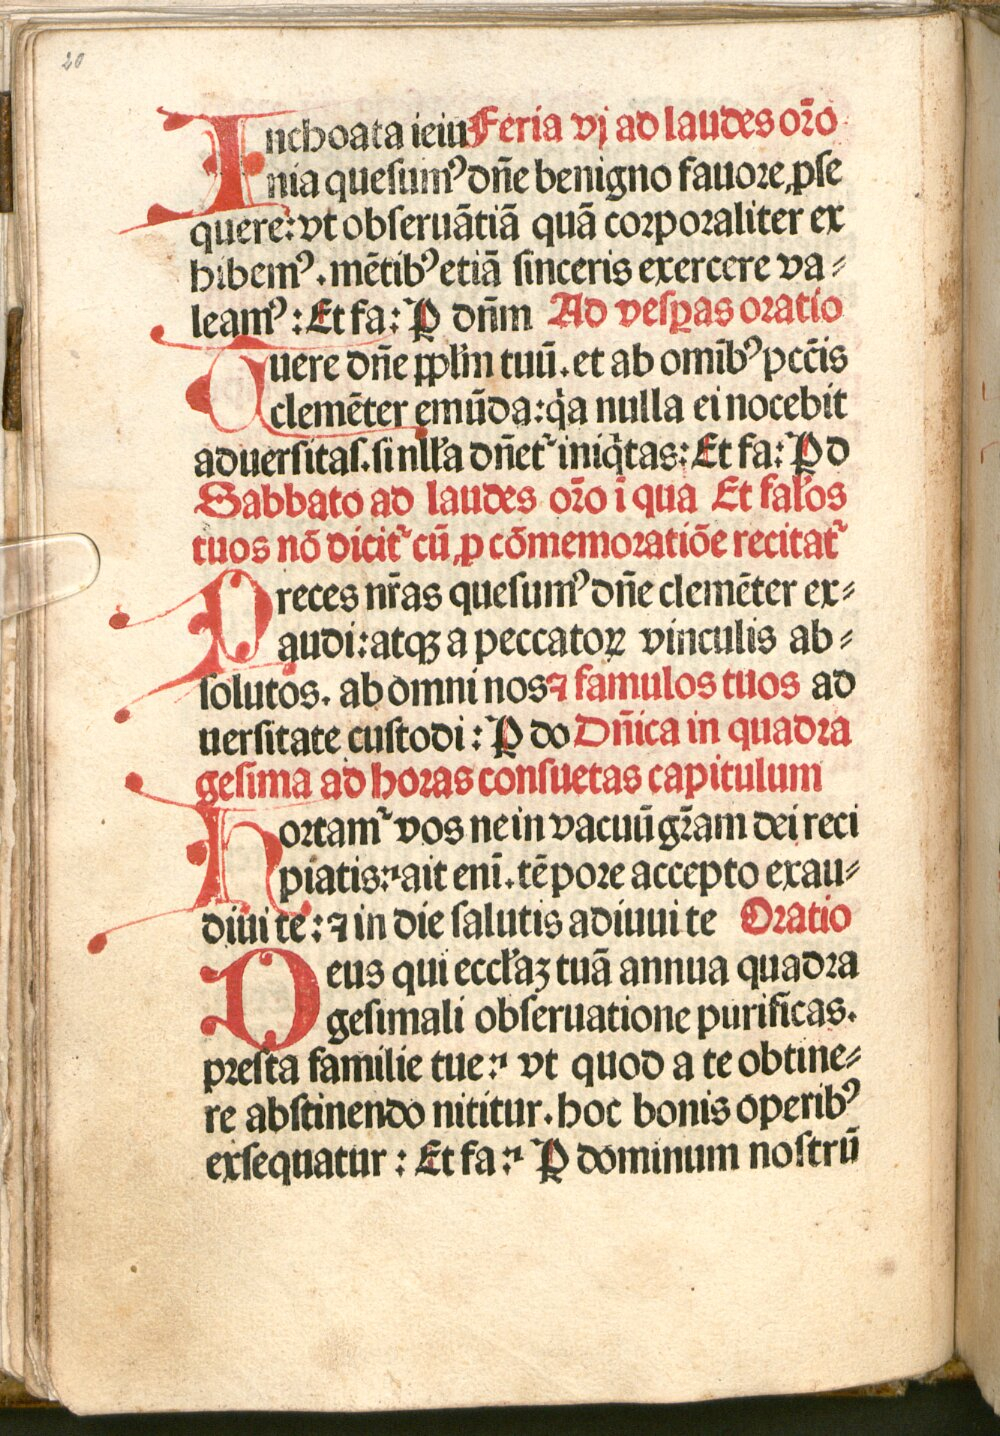 20
Inchoata ieiu Feria vj ad laudes or̄o
nia quesumꝰ dn̄e benigno fauore, ꝓse
quere: vt obseruātiā quā corporaliter ex
hibemꝰ. mētibꝰ etiā sinceris exercere va⸗
leamꝰ: Et fa: P dn̄m Ad vesꝑas oratio
Tuere dn̄e ppl̄m tuū. et ab omībꝰ pcc̄is
clemēter emūda: qa nulla ei nocebit
aduersitas. si nll'a dn̄et᷑ iniq̄tas: Et fa: P d
Sabbato ad laudes or̄o ī qua Et fal'os
tuos nō dicit᷑ cū, ꝓ cōmemoratiōe recitat᷑
Preces nr̄as quesumꝰ dn̄e clemēter ex⸗
audi: atqꝫ a peccatoꝝ vinculis ab⸗
solutos. ab omni nos ⁊ famulos tuos ad
uersitate custodi: P do Dn̄ica in quadra
gesima ad horas consuetas capitulum
Hortam᷑ vos ne in vacuū gr̄am dei reci
piatis: ait enī. tēpore accepto exau⸗
diui te: ⁊ in die salutis adiuui te Oratio
Deus qui eccl'aꝫ tuā annua quadra
gesimali obseruatione purificas.
presta familie tue: vt quod a te obtine⸗
re abstinendo nititur. hoc bonis operibꝰ
exsequatur: Et fa: P dominum nostrū